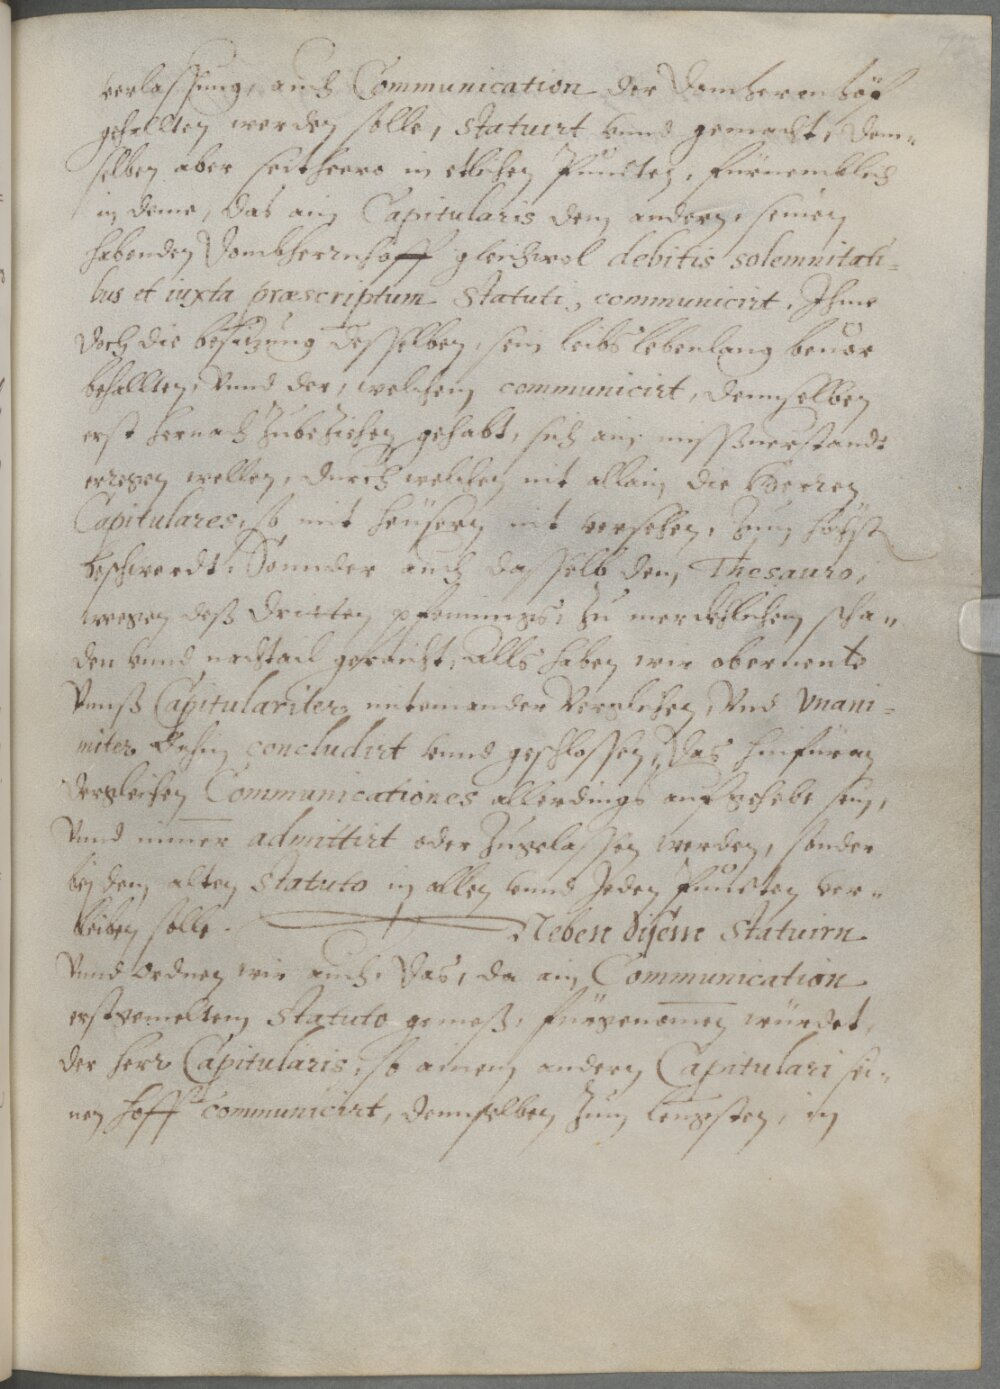 verlassung, auch Communication der Domherrn höf
gehallten werden solle, statuirt vnnd gemacht, dem=
selben aber seithero in etlichen Puncten, fürnemblich
in deme, das ain Capitularis dem andern, seinen
habenden Dombherrnhoff gleichwol debitis solemnitati=
bus et iuxta præscriptum statuti, communicirt, Ihme
doch die besitzung desselben, sein leibs lebenlang beuor
behallten, Vnnd der, welchem communicirt, denselben
erst hernach zubeziehen gehabt, sich ain missuerstandt
eregen wellen, durch welchen nit allain die Herren
Capitulares, so mit heüsern nit versehen, zum höchst
beschwerdt, Sonnder auch dasselb dem Thesauro,
wegen deß dritten pfennings, zu merckhlichem scha=
den vnnd nachtail geraicht, Alls haben wir obernente
Vnnß Capitulariter miteinander Verglichen, Vnd Vnani=
miter dahin concludirt vnnd geschlossen, Das hinfüran
dergleichen Communicationes allerdings aufgehebt sein,
Vnnd nimer admittirt oder zugelassen werden, sonder
bey dem alten statuto in allen vnnd Jeden Puncten ver=
bleiben solle. Neben disem Statuirn
Vnnd ordnen wir auch, Das, da ain Communication
erstgemeltem Statuto gemeß, fürgenomen würdet,
der herr Capitularis, so ainem andern Capitulari sei=
nen hoff communicirt, demselben zum lengsten, in